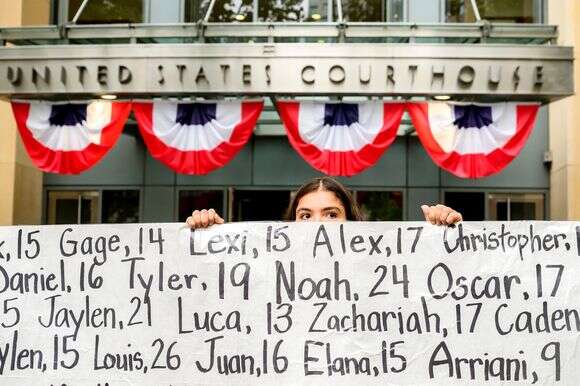 UNITED STATES COURTHOUSE
15 Gage, 14 Lexi, 15 Alex, 17 Christopher,
Daniel, 16 Tyler, 19 Noah, 24 Oscar, 17
5 Jaylen, 21 Luca, 13 Zachariah, 17 Caden
ylen, 15 Louis, 26 Juan, 16 Elana, 15 Arriani, 9